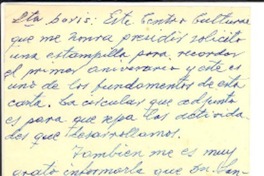 Srta Doris: Este Centro Cultural
que me honra presidir solicitó
una estampilla para recordar
el primer aniversario y este es
uno de los fundamentos de esta
carta. La circular que adjunto
es para que sepa las activida-
des que desarrollamos.
Tambien me es muy
grato informarla que en